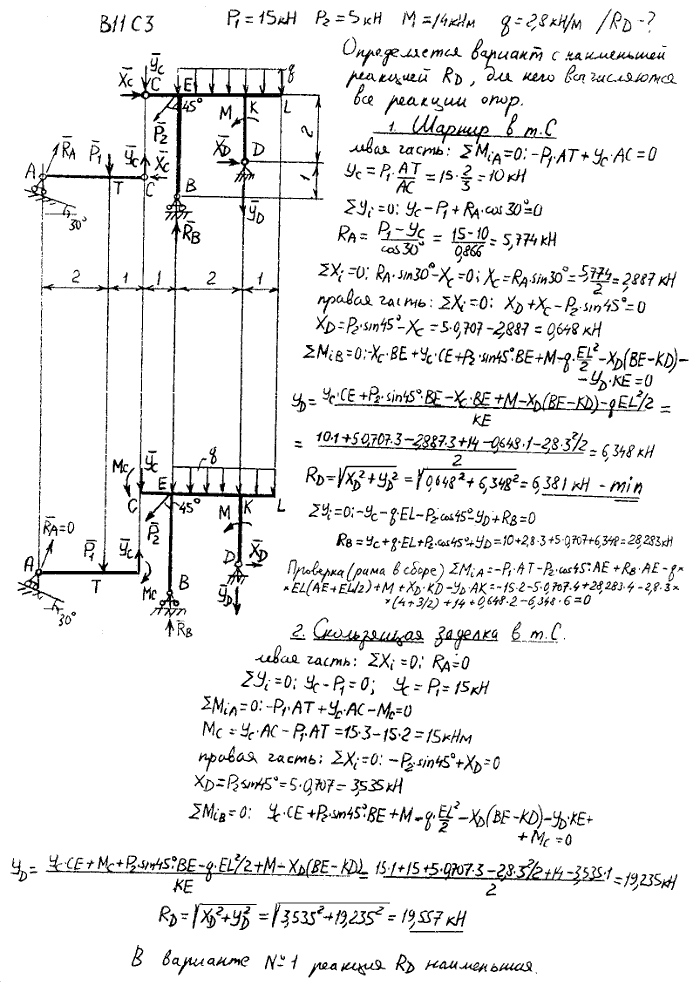 В11 С3
P₁=15кН P₂=5кН M=14кНм q=2,8кН/м / R_D -?
Определяется вариант с наименьшей
реакцией R_D, для него вычисляются
все реакции опор.
1. Шарнир в т.С
левая часть: ΣMiA=0: -P₁·AT+Yc·AC=0
Yc=P₁·AT/AC=15·2/3=10кН
ΣYi=0: Yc-P₁+R_A·cos30°=0
R_A=(P₁-Yc)/cos30°=(15-10)/0,866=5,774кН
ΣXi=0: R_A·sin30°-Xc=0; Xc=R_A sin30°=5,774/2=2,887кН
правая часть: ΣXi=0: X_D+Xc-P₂·sin45°=0
X_D=P₂·sin45°-Xc=5·0,707-2,887=0,648кН
ΣMiB=0:-Xc·BE+Yc·CE+P₂·sin45°·BE+M-q·EL²/2-X_D(BE-KD)-
-Y_D·KE=0
Y_D=(Yc·CE+P₂·sin45°·BE-Xc·BE+M-X_D(BE-KD)-qEL²/2)/KE=
=(10·1+5·0,707·3-2,887·3+14-0,648·1-2,8·3²/2)/2=6,348кН
R_D=√(X_D²+Y_D²)=√(0,648²+6,348²)=6,381кН-min
ΣYi=0:-Yc-q·EL-P₂·cos45°-Y_D+R_B=0
R_B=Yc+q·EL+P₂·cos45°+Y_D=10+2,8·3+5·0,707+6,348=28,283кН
Проверка (рама в сборе) ΣMiA=-P₁·AT-P₂·cos45°·AE+R_B·AE-q×
×EL(AE+EL/2)+M+X_D·KD-Y_D·AK=-15·2-5·0,707·4+28,283·4-2,8·3×
×(4+3/2)+14+0,648·2-6,348·6=0
2. Скользящая заделка в т.С.
левая часть: ΣXi=0; R_A=0
ΣYi=0; Yc-P₁=0; Yc=P₁=15кН
ΣMiA=0:-P₁·AT+Yc·AC-Mc=0
Mc=Yc·AC-P₁·AT=15·3-15·2=15кНм
правая часть: ΣXi=0: -P₂·sin45°+X_D=0
X_D=P₂sin45°=5·0,707=3,535кН
ΣMiB=0: Yc·CE+P₂·sin45°·BE+M-q·EL²/2-X_D(BE-KD)-Y_D·KE+
+Mc=0
Y_D=(Yc·CE+Mc+P₂·sin45°·BE-q·EL²/2+M-X_D(BE-KD))/KE=(15·1+15+5·0,707·3-2,8·3²/2+14-3,535·1)/2=19,235кН
R_D=√(X_D²+Y_D²)=√(3,535²+19,235²)=19,557кН
В варианте №1 реакция R_D наименьшая.
Yc
Xc
C
E
q
45°
P₂
M
K
L
X_D
D
Y_D
B
R_B
2
1
A
R_A
P₁
Yc
Xc
T
C
30°
2
1
1
2
1
Mc
Yc
q
C
E
45°
P₂
M
K
L
D
X_D
Y_D
B
R_B
A
R_A=0
P₁
Yc
T
Mc
30°